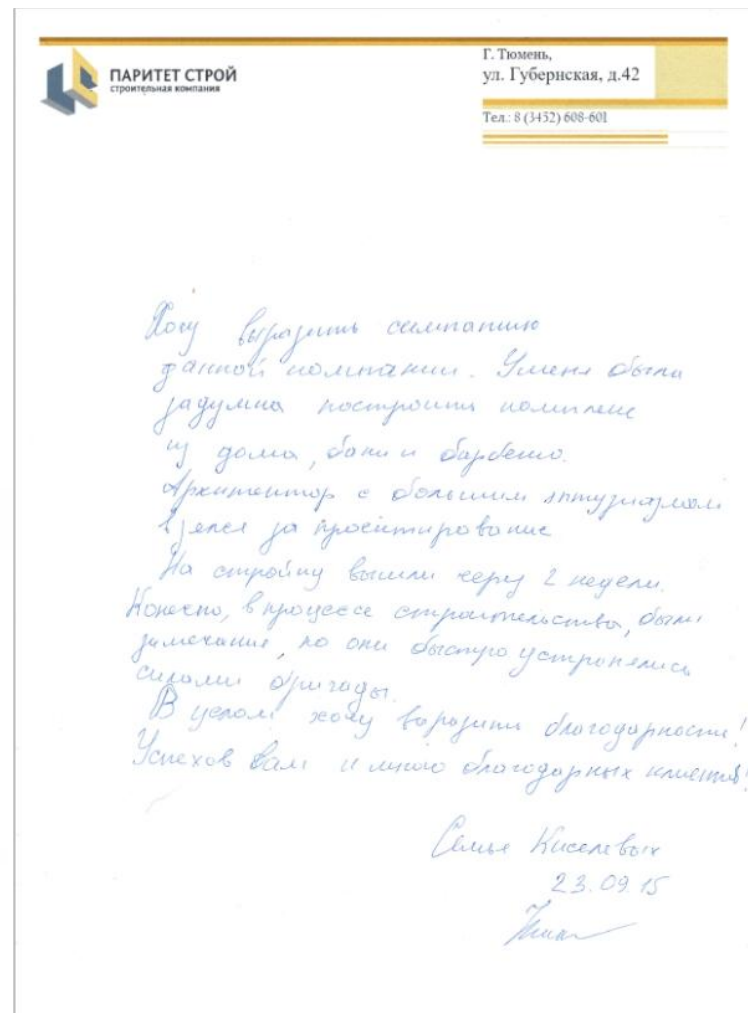 ПАРИТЕТ СТРОЙ
строительная компания
Г. Тюмень,
ул. Губернская, д.42
Тел.: 8 (3452) 608-601
Хочу выразить симпатию
данной компании. У меня была
задумка построить комплекс
из дома, бани и барбекю.
Архитектор с большим энтузиазмом
взялся за проектирование
На стройку вышли через 2 недели.
Конечно, в процессе строительства, были
замечания, но они быстро устранялись
силами бригады.
В целом хочу выразить благодарность!
Успехов вам и много благодарных клиентов!
Семья Киселевых
23.09.15